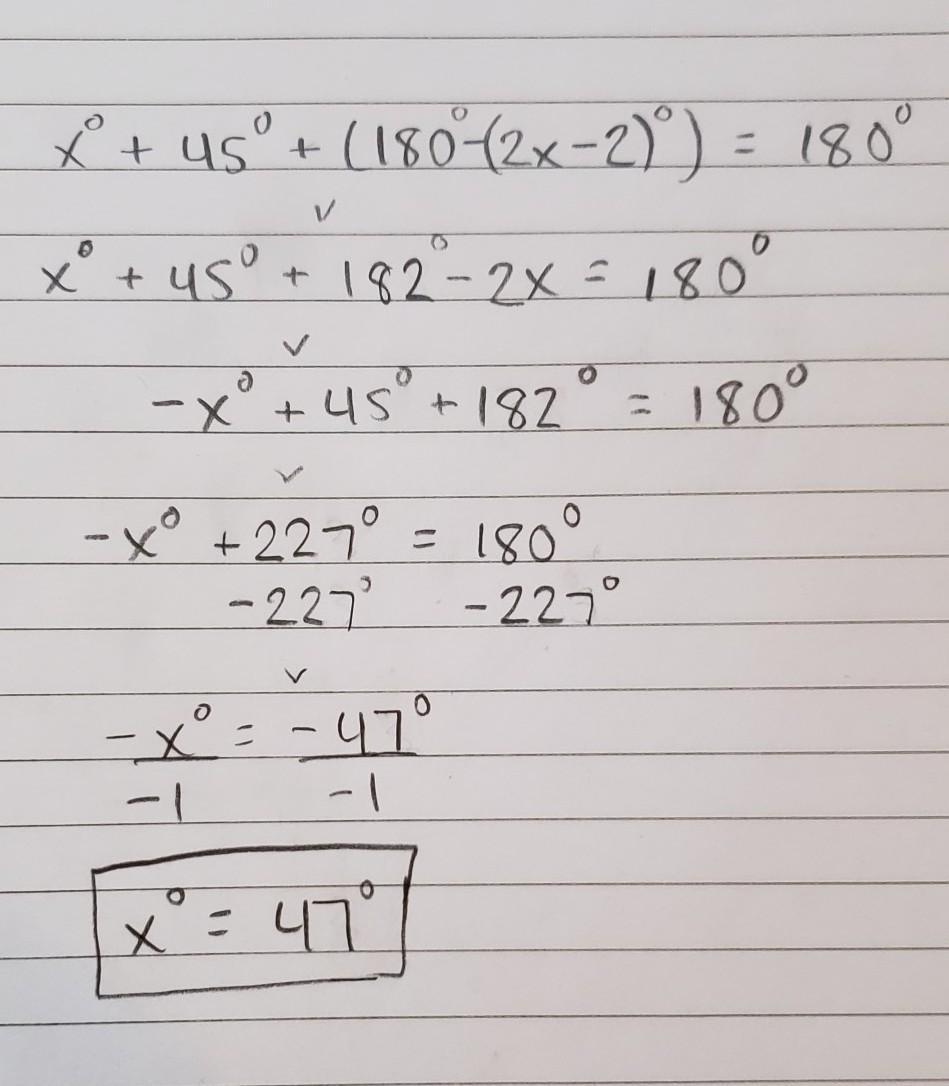 x° + 45° + (180°-(2x-2)°) = 180°
✓
x° + 45° + 182° - 2x = 180°
✓
-x° + 45° + 182° = 180°
✓
-x° + 227° = 180°
-227° -227°
✓
-x° = -47°
-1 -1
x° = 47°